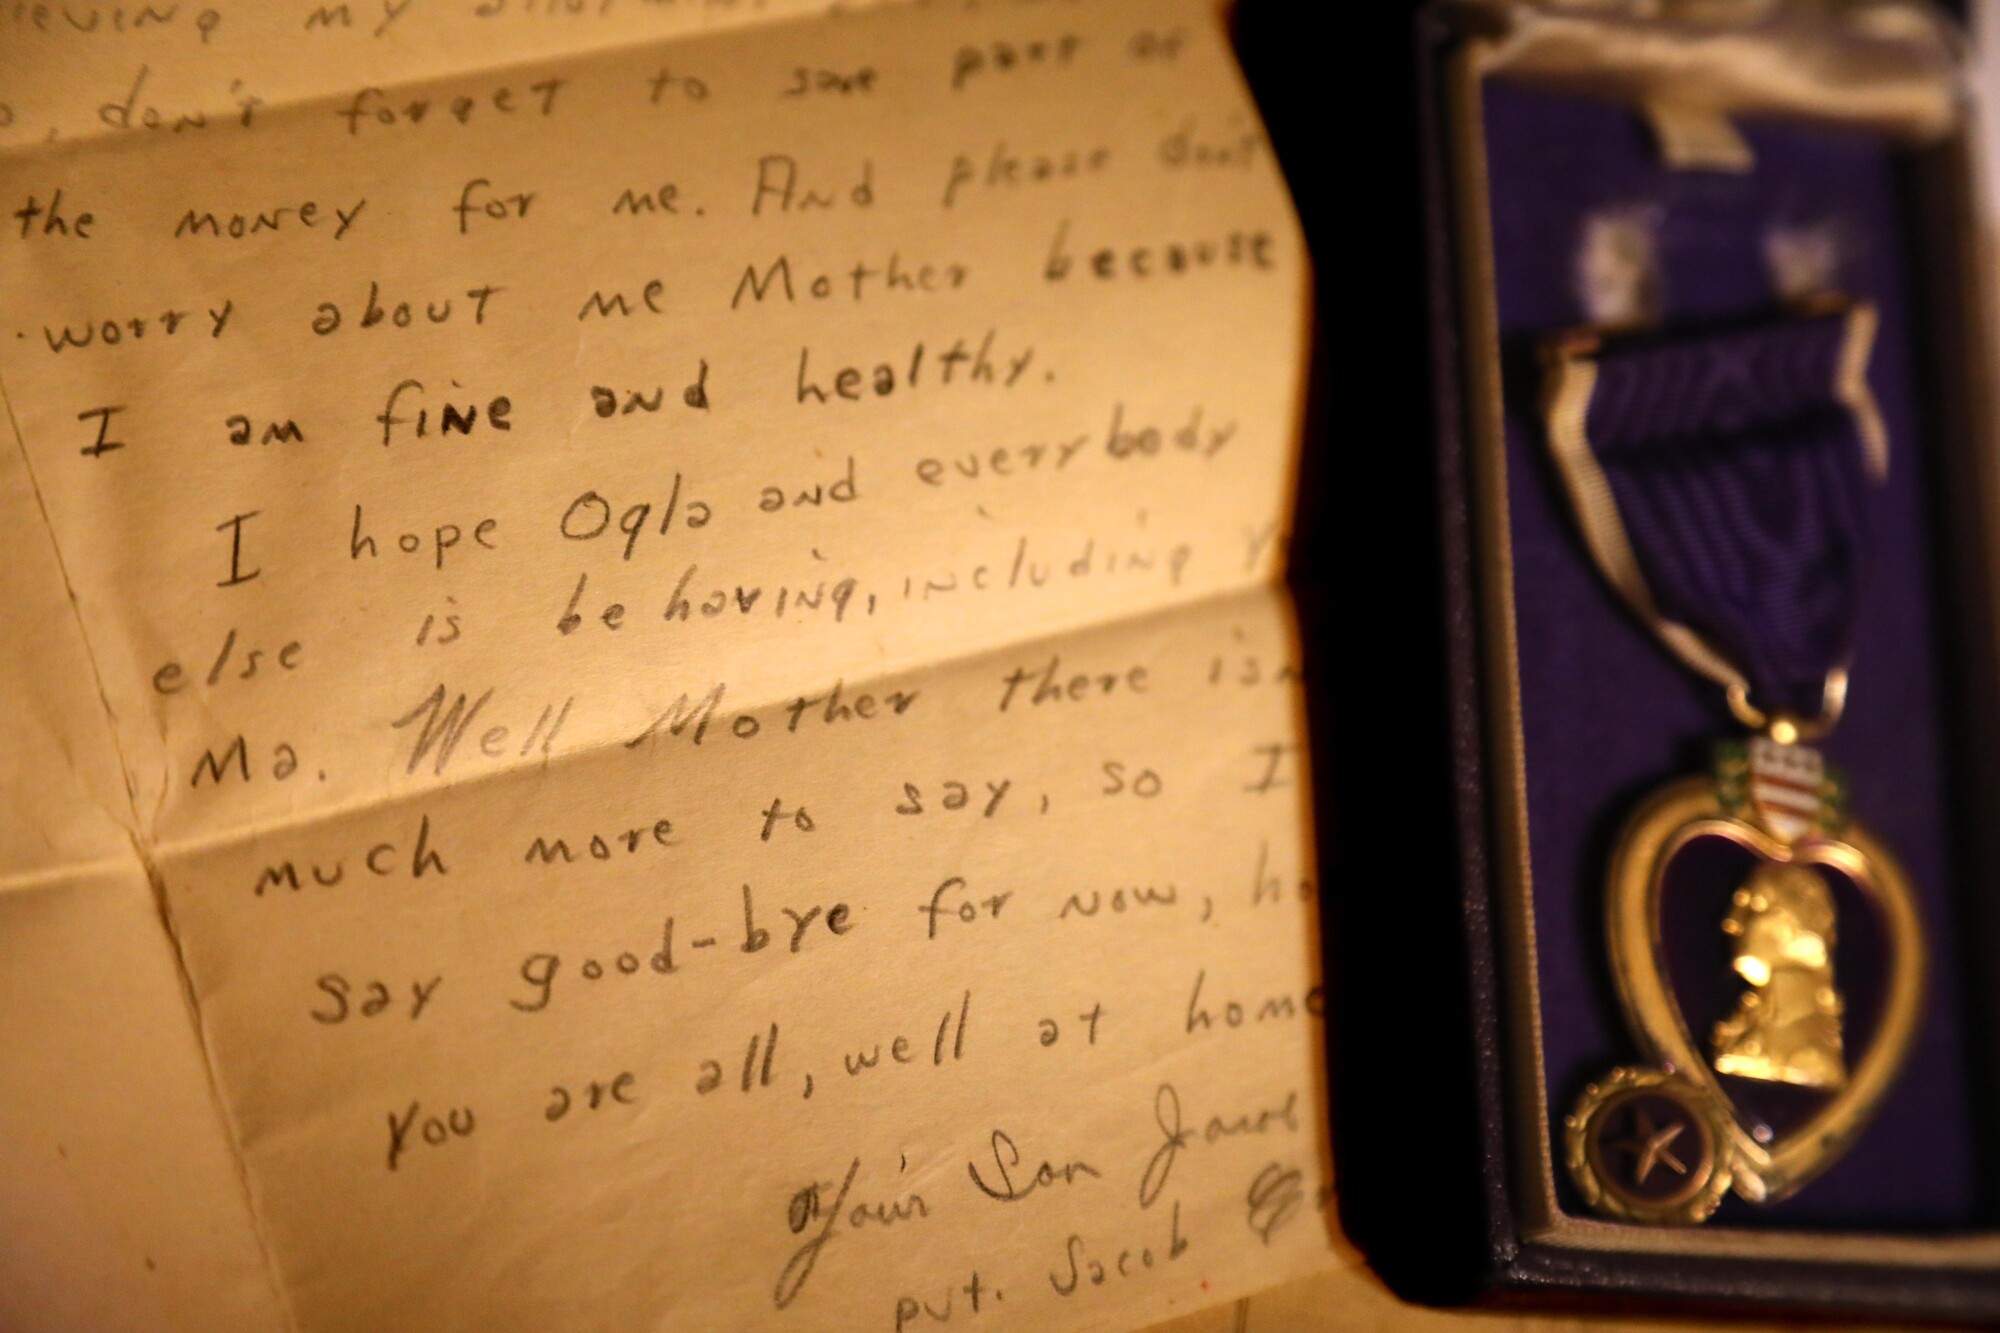 my
, don't forget to save part of
the money for me. And please don't
worry about me Mother because
I am fine and healthy.
I hope Ogla and everybody
else is behaving, including
Ma. Well Mother there
much more to say, so I
say good-bye for now,
you are all, well at home
Your Son
pvt. Jacob